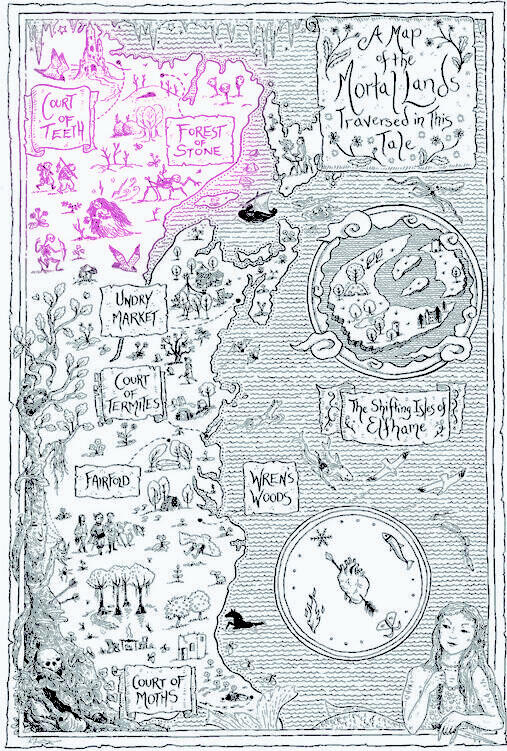 A Map
of the
Mortal Lands
Traversed in This
Tale
COURT
OF
TEETH
FOREST
OF
STONE
UNDRY
MARKET
COURT
OF
TERMITES
The Shifting Isles of
Elfhame
FAIRFOLD
WREN'S
WOODS
COURT OF
MOTHS